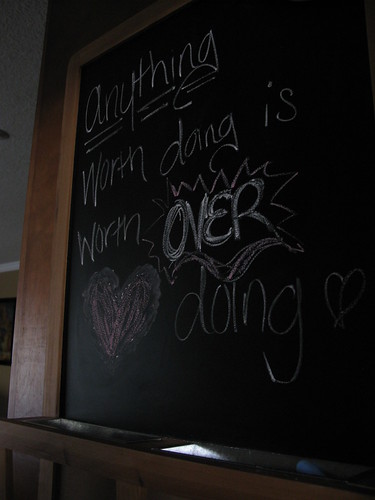 anything
worth doing is
worth OVER
doing